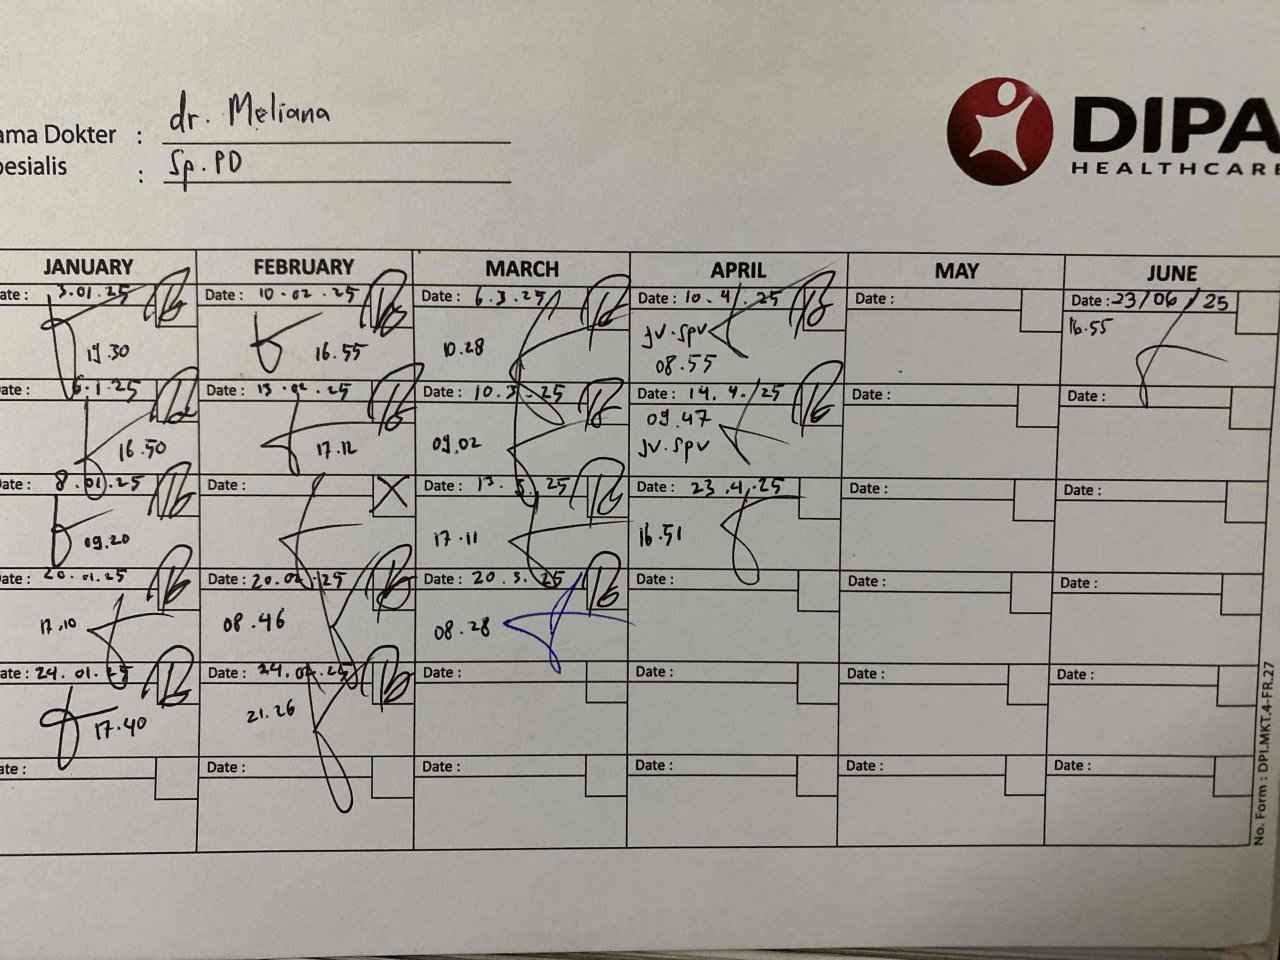 ama Dokter : dr. Meliana
esialis : Sp.PD
DIPA
HEALTHCARE
JANUARY FEBRUARY MARCH APRIL MAY JUNE
ate: 3.01.25 Date: 10.02.25 Date: 6.3.25 Date: 10.4.25 Date: Date: 23/06/25
19.30 16.55 10.28 Jv.Spv 16.55
08.55
ate: 6.1.25 Date: 13.02.25 Date: 10.3.25 Date: 14.4.25 Date: Date:
16.50 17.12 09.02 09.47
Jv.Spv
ate: 8.01.25 Date: Date: 13.3.25 Date: 23.4.25 Date: Date:
09.20 17.11 16.51
ate: 20.01.25 Date: 20.02.25 Date: 20.3.25 Date: Date: Date:
17.10 08.46 08.28
ate: 24.01.25 Date: 24.02.25 Date: Date: Date: Date:
17.40 21.26
ate: Date: Date: Date: Date: Date:
No. Form : DPI.MKT.4-FR.27